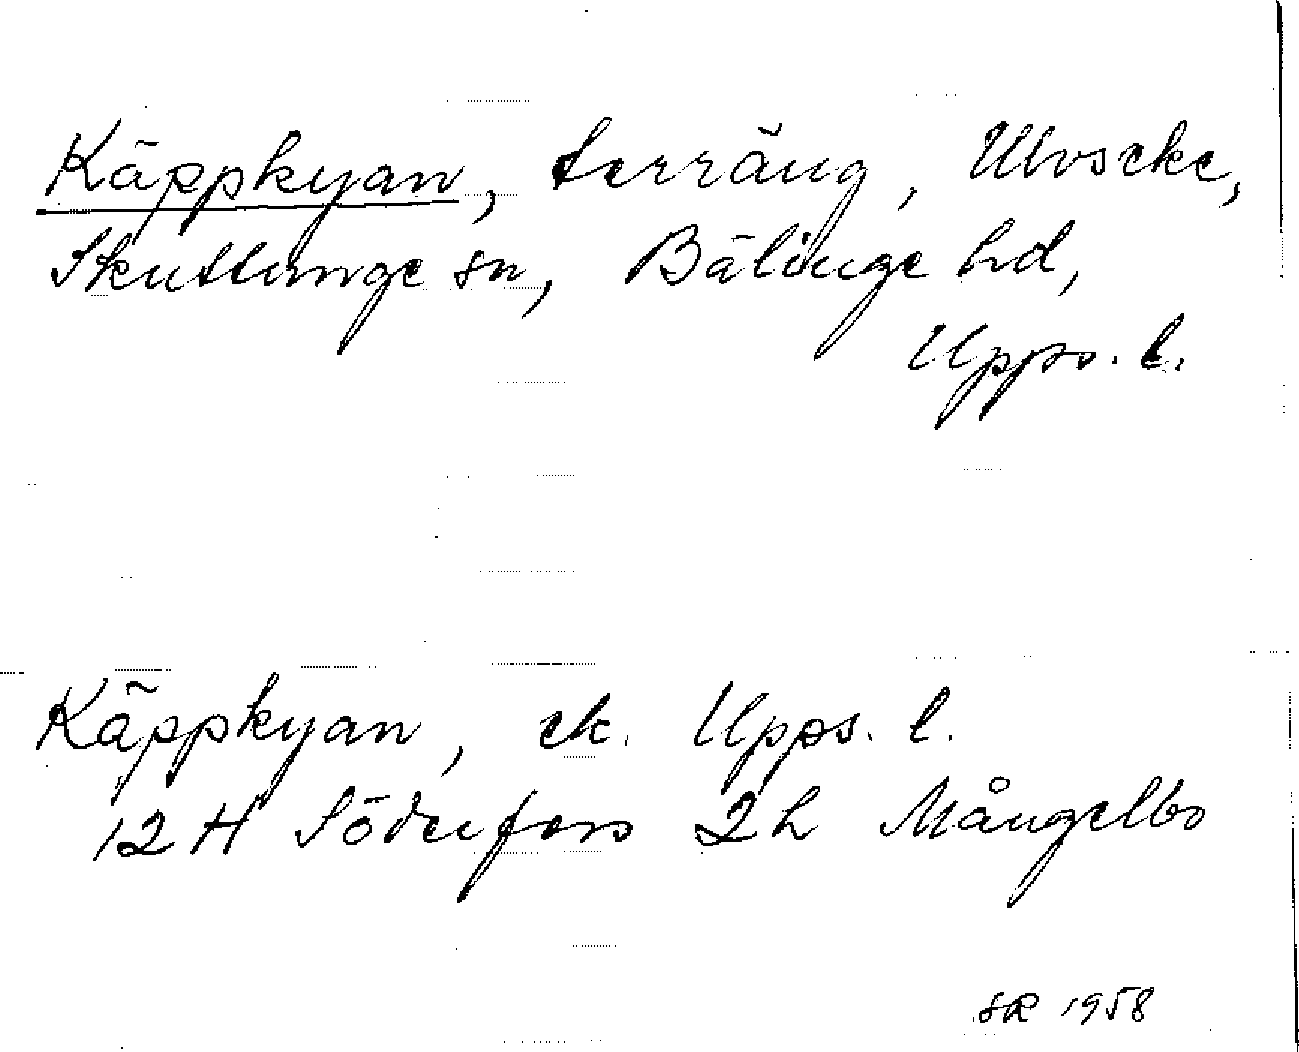 Käppkyan, terräng, Ulvseke,
Skuttunge sn, Bälinge hd,
Upps. l.
Käppkyan, ek. Upps. l.
12 H Söderfors 2h Mångelbo
SR 1958